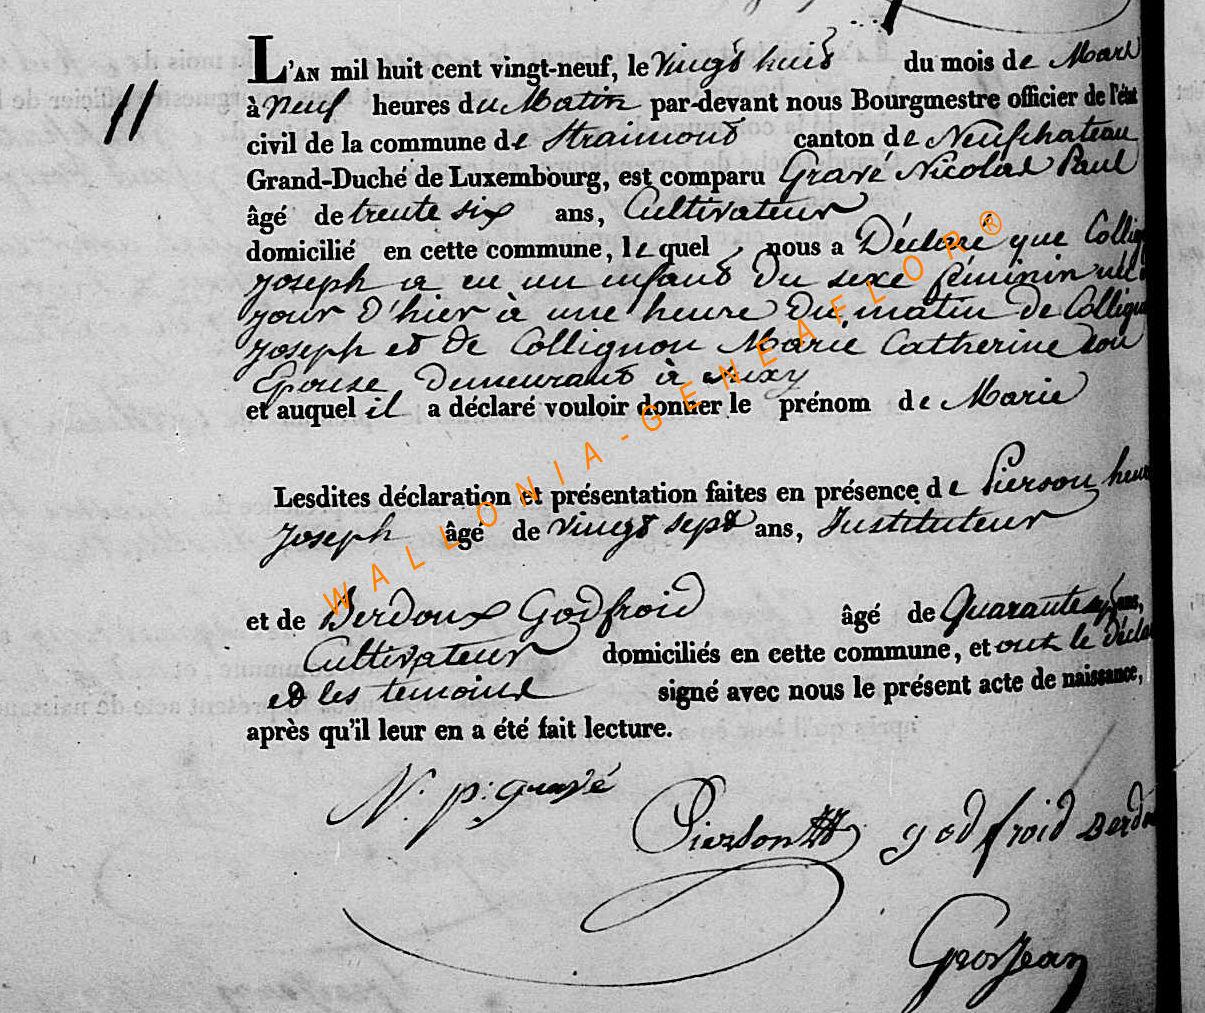 11
L'AN mil huit cent vingt-neuf, le vingt huit du mois de Mars
à neuf heures du Matin par-devant nous Bourgmestre officier de l'état
civil de la commune de Straimont canton de Neufchateau
Grand-Duché de Luxembourg, est comparu Gravé Nicolas Paul
âgé de trente six ans, Cultivateur
domicilié en cette commune, lequel nous a Déclaré que Collig
Joseph a eu un enfant du sexe féminin née
jour d'hier à une heure du matin de Collign
Joseph et de Collignon Marie Catherine son
Epouse demeurant à Suxy
et auquel il a déclaré vouloir donner le prénom de Marie
Lesdites déclaration et présentation faites en présence de Pierson henri
Joseph âgé de vingt sept ans, Instituteur
et de Berdoux Godfroid âgé de Quarante ans,
Cultivateur domiciliés en cette commune, et ont le Décla
et les temoins signé avec nous le présent acte de naissance,
après qu'il leur en a été fait lecture.
N. p: gravé
Pierson godfroid Berdo
GrosJean
WALLONIA-GENEAFLOR®